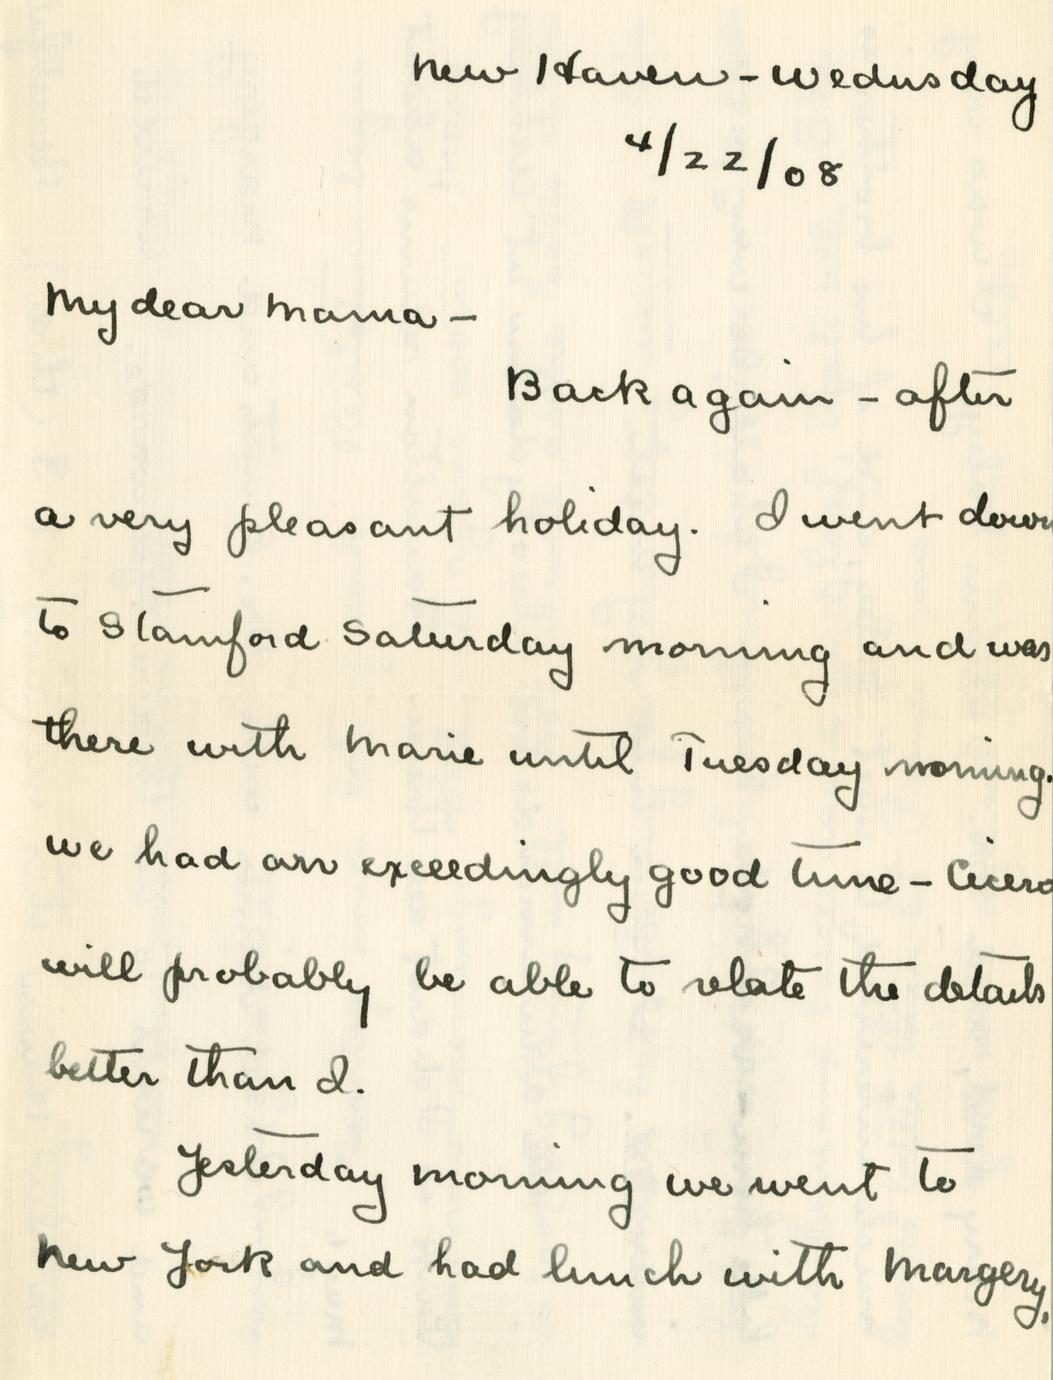 New Haven - Wednsday
4/22/08
My dear Mama -
Back again - after
a very pleasant holiday. I went down
to Stamford Saturday morning and was
there with Marie until Tuesday morning.
we had an exceedingly good time - Cicero
will probably be able to relate the details
better than I.
Yesterday morning we went to
New York and had lunch with Margery,